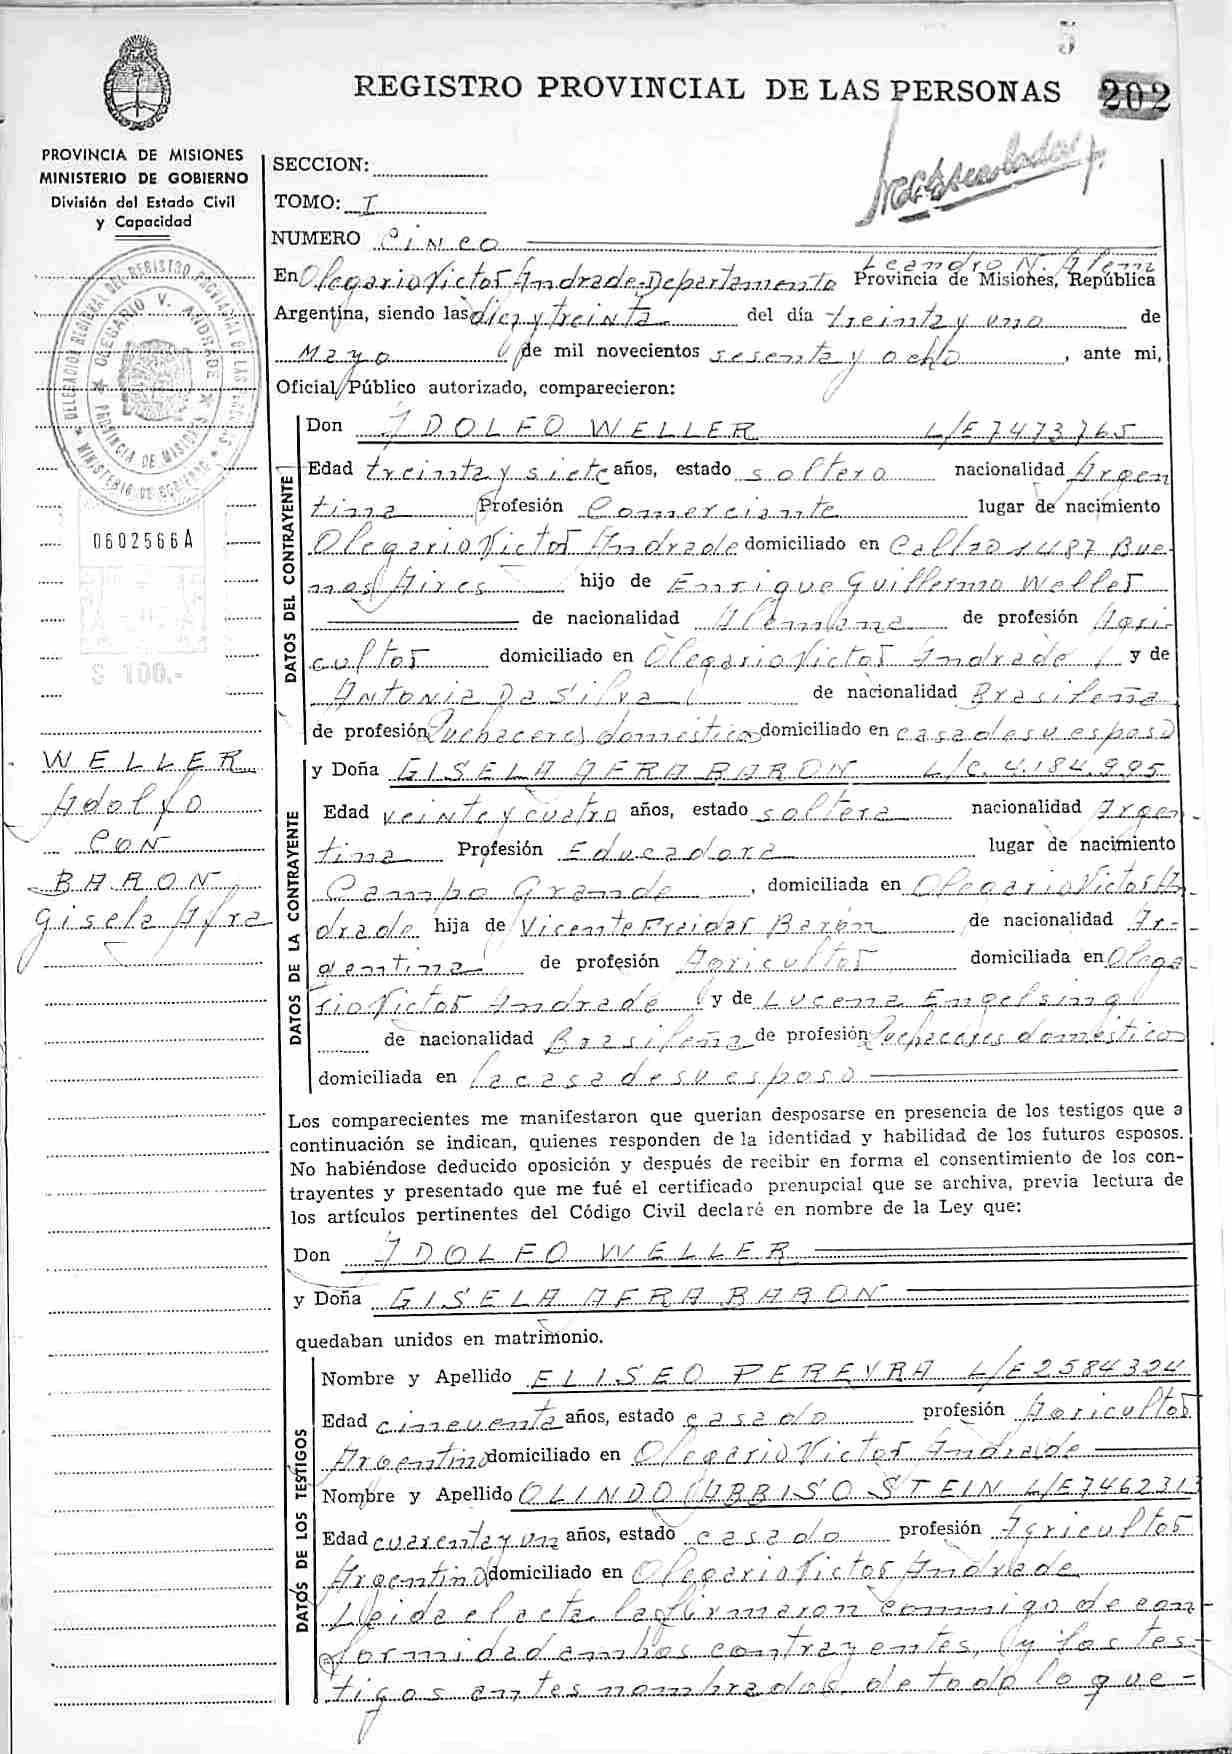 5
REGISTRO PROVINCIAL DE LAS PERSONAS 202
PROVINCIA DE MISIONES
MINISTERIO DE GOBIERNO
División del Estado Civil
y Capacidad
DELEGACION REGIONAL DEL REGISTRO PROVINCIAL DE LAS PERSONAS
OLEGARIO V. ANDRADE
PROVINCIA DE MISIONES
MINISTERIO DE GOBIERNO
0602566A
$ 100.-
WELLER
Adolfo
CON
BARON
Gisela Afra
SECCION:
TOMO: I
NUMERO Cinco
Leandro N. Alem
En Olegario Victor Andrade-Departamento Provincia de Misiones, República
Argentina, siendo las diez y treinta del día treinta y uno de
Mayo de mil novecientos sesenta y ocho, ante mi,
Oficial Público autorizado, comparecieron:
DATOS DEL CONTRAYENTE
Don ADOLFO WELLER L/E 7473765
Edad treinta y siete años, estado soltero nacionalidad Argen
tina Profesión Comerciante lugar de nacimiento
Olegario Victor Andrade domiciliado en Callao 1487 Bue-
nos Aires hijo de Enrique Guillermo Weller
de nacionalidad Alemana de profesión Agri-
cultor domiciliado en Olegario Victor Andrade y de
Antonia Da Silva de nacionalidad Brasileña
de profesión Quehaceres domesticos domiciliado en casa de su esposo
DATOS DE LA CONTRAYENTE
y Doña GISELA AFRA BARON L/C. 4.184.995
Edad veinte y cuatro años, estado soltera nacionalidad Argen-
tina Profesión Educadora lugar de nacimiento
Campo Grande, domiciliada en Olegario Victor An-
drade hija de Vicente Freidar Barón de nacionalidad Ar-
gentina de profesión Agricultor domiciliada en Olega-
rio Victor Andrade y de Lucena Engelsing
de nacionalidad Brasileña de profesión Quehaceres domestico
domiciliada en la casa de su esposo
Los comparecientes me manifestaron que querian desposarse en presencia de los testigos que a
continuación se indican, quienes responden de la identidad y habilidad de los futuros esposos.
No habiéndose deducido oposición y después de recibir en forma el consentimiento de los con-
trayentes y presentado que me fué el certificado prenupcial que se archiva, previa lectura de
los artículos pertinentes del Código Civil declaré en nombre de la Ley que:
Don ADOLFO WELLER
y Doña GISELA AFRA BARON
quedaban unidos en matrimonio.
DATOS DE LOS TESTIGOS
Nombre y Apellido ELISEO PEREYRA L/E 2584324
Edad cincuenta años, estado casado profesión Agricultor
Argentino domiciliado en Olegario Victor Andrade
Nombre y Apellido OLINDO ARBISO STEIN L/E 7462313
Edad cuarenta y un años, estado casado profesión Agricultor
Argentino domiciliado en Olegario Victor Andrade
Leida el acta la firmaron conmigo de con-
formidad ambos contrayentes, y los tes-
tigos antes nombrados, de todo lo que-